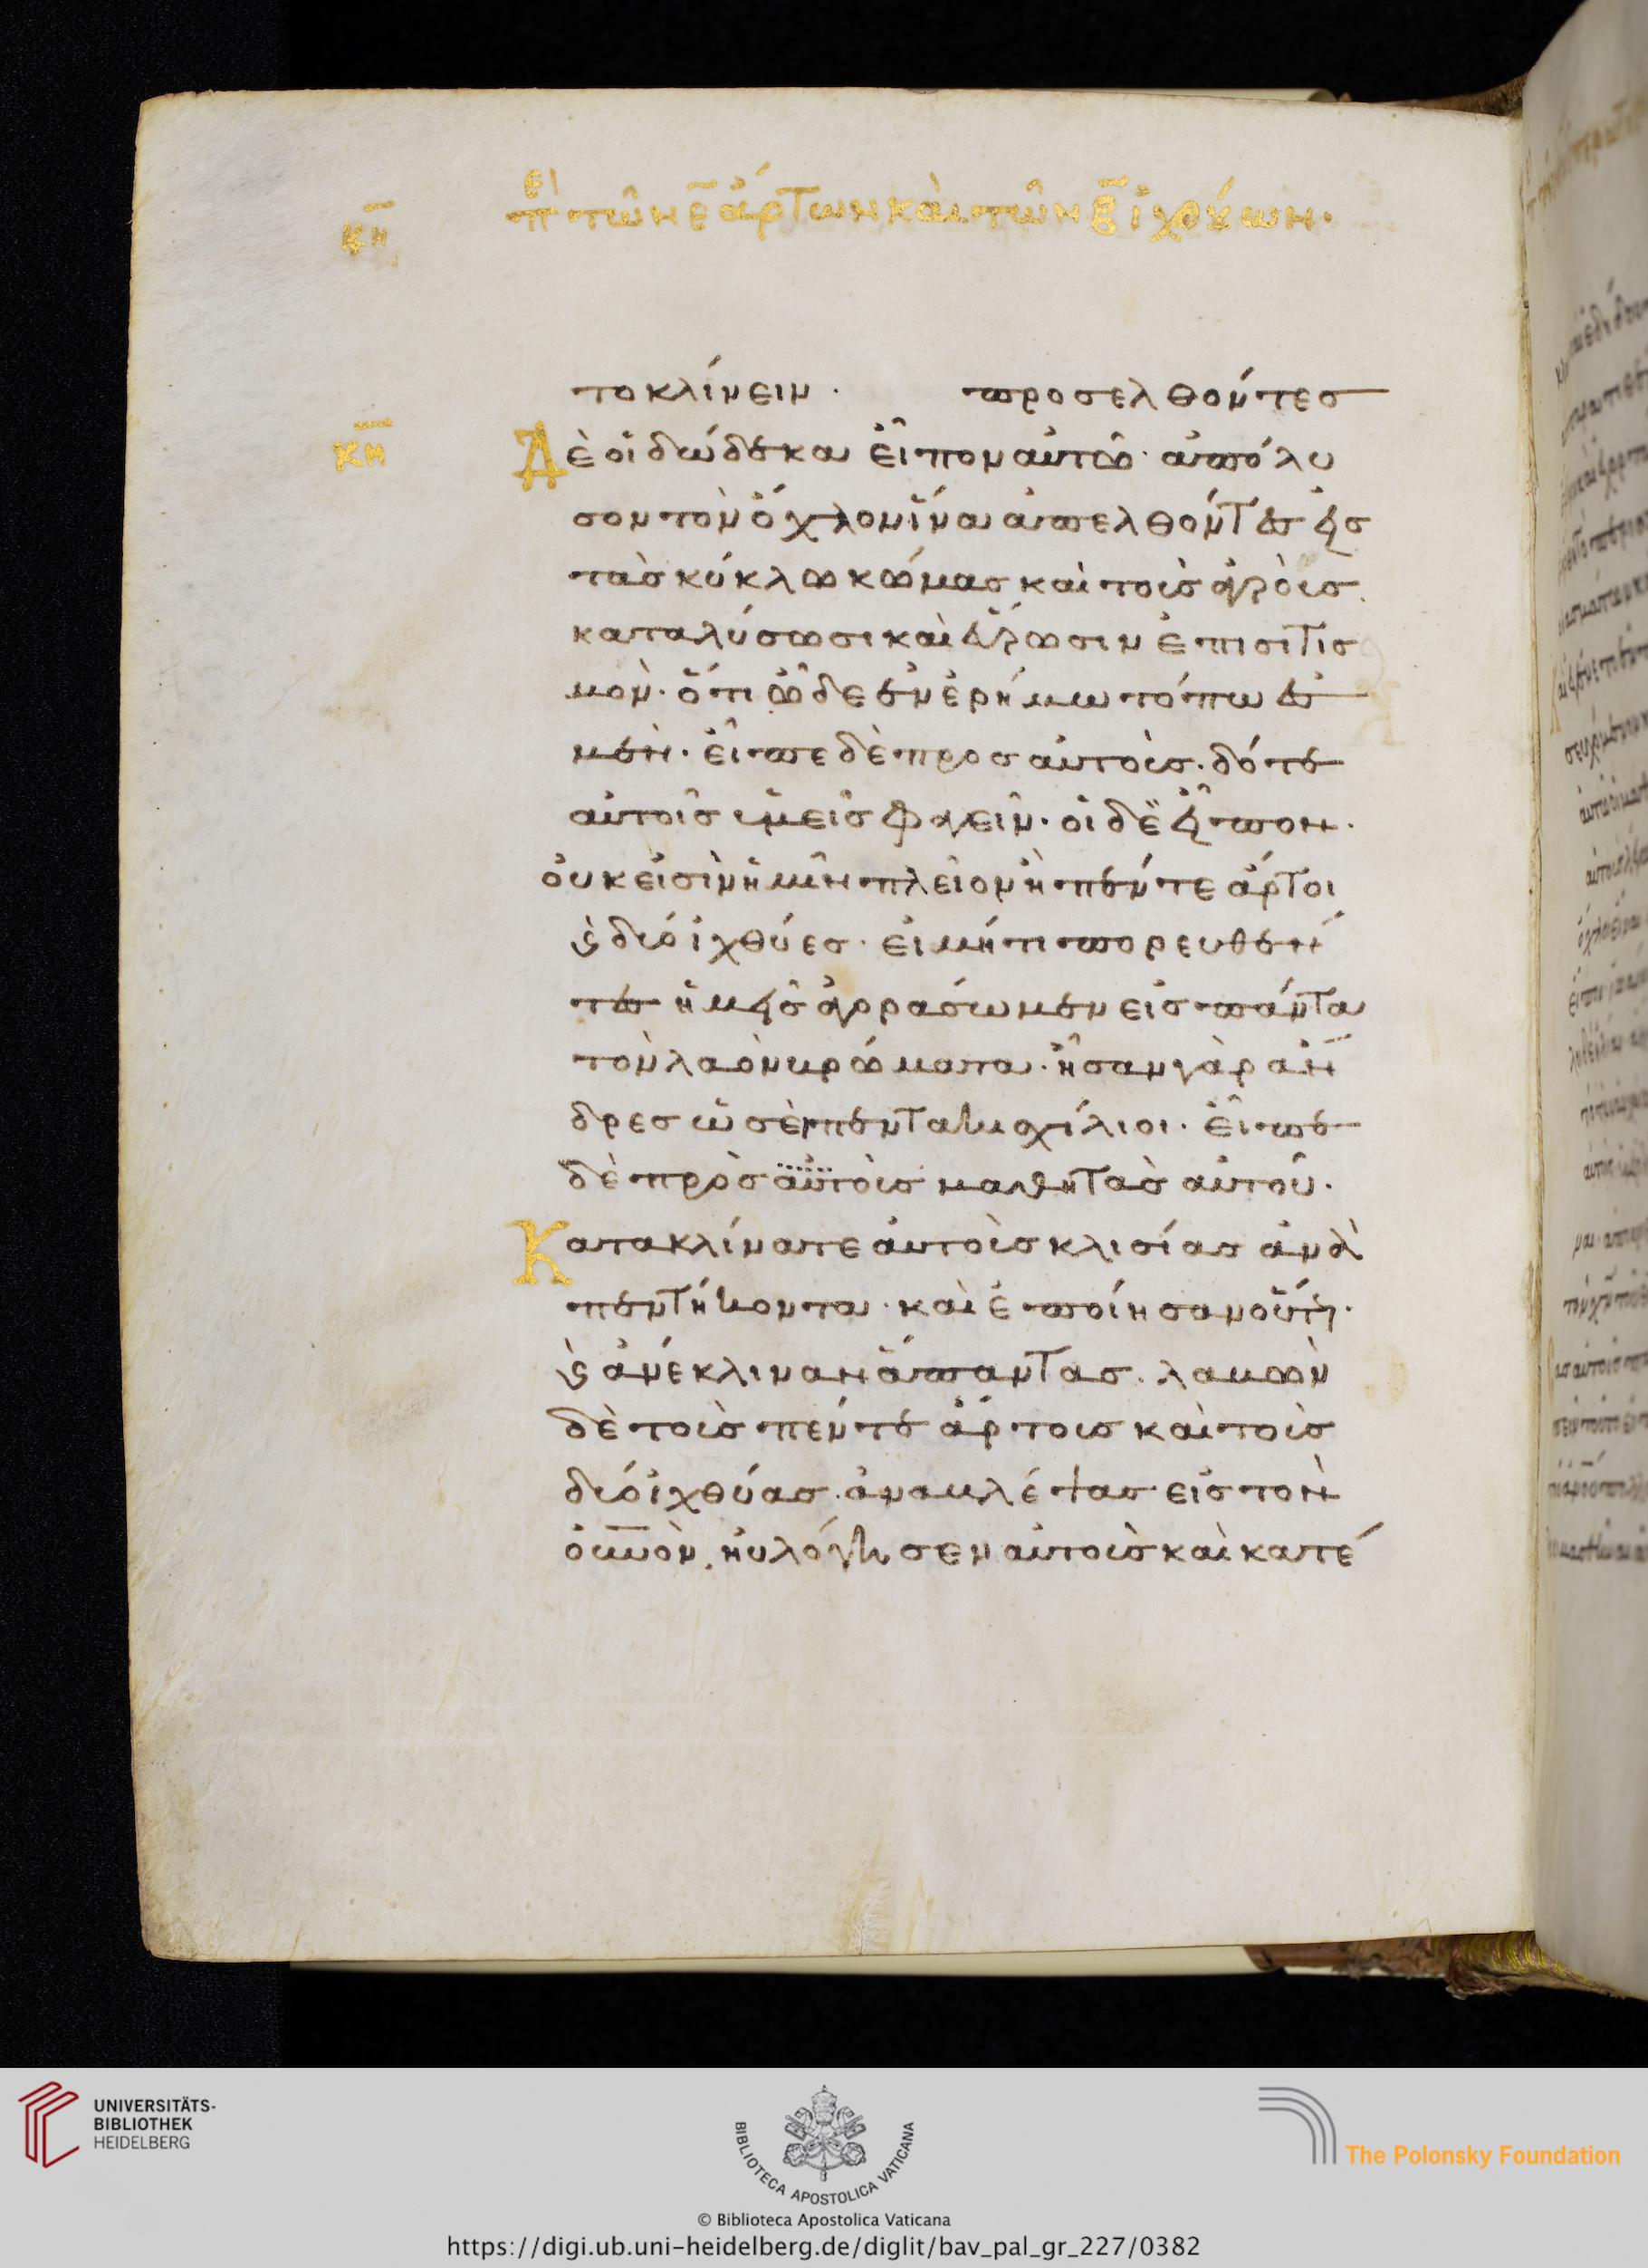 κη
πὲ τῶν ε̄ ἄρτων καὶ τῶν β̄ ἰχθύων.
το κλίνειν. προσελθόντεσ
κη
Δὲ οἱ δώδεκα εἶπον αὐτῶ. ἀπόλυ
σον τὸν ὄχλον ἵνα ἀπελθόντεσ εἰσ
τὰσ κύκλω κώμασ καὶ τοὺσ ἀγροὺσ
καταλύσωσι καὶ εὕρωσιν ἐπισιτισ
μὸν. ὅτι ὧδε ἐν ἐρήμω τόπω ἐσ
μὲν. εἶπε δὲ προσ αὐτοὺσ. δότε
αὐτοῖσ ὑμεῖσ φαγεῖν. οἱ δὲ εἶπον.
οὐκ εἰσὶν ἡμῖν πλεῖον ἢ πέντε ἄρτοι
ϗ δύο ἰχθύεσ. εἰ μήτι πορευθέν
τεσ ἡμεῖσ ἀγοράσωμεν εἰσ πάντα
τὸν λαὸν βρώματα. ἦσαν γὰρ ἄν
δρεσ ὡσεὶ πεντακισχίλιοι. εἶπε
δὲ πρὸσ αὐτοὺσ μαθητὰσ αὐτοῦ.
Κατακλίνατε αὐτοὺσ κλισίασ ἀνὰ
πεντήκοντα. καὶ ἐποίησαν οὕτω.
ϗ ἀνέκλιναν ἅπαντασ. λαβὼν
δὲ τοὺσ πέντε ἄρτουσ καὶ τοὺσ
δύο ἰχθύασ. ἀναβλέψασ εἰσ τὸν
οὐνὸν. ηὐλόγησεν αὐτοὺσ καὶ κατέ
UNIVERSITÄTS-
BIBLIOTHEK
HEIDELBERG
BIBLIOTECA APOSTOLICA VATICANA
The Polonsky Foundation
© Biblioteca Apostolica Vaticana
https://digi.ub.uni-heidelberg.de/diglit/bav_pal_gr_227/0382